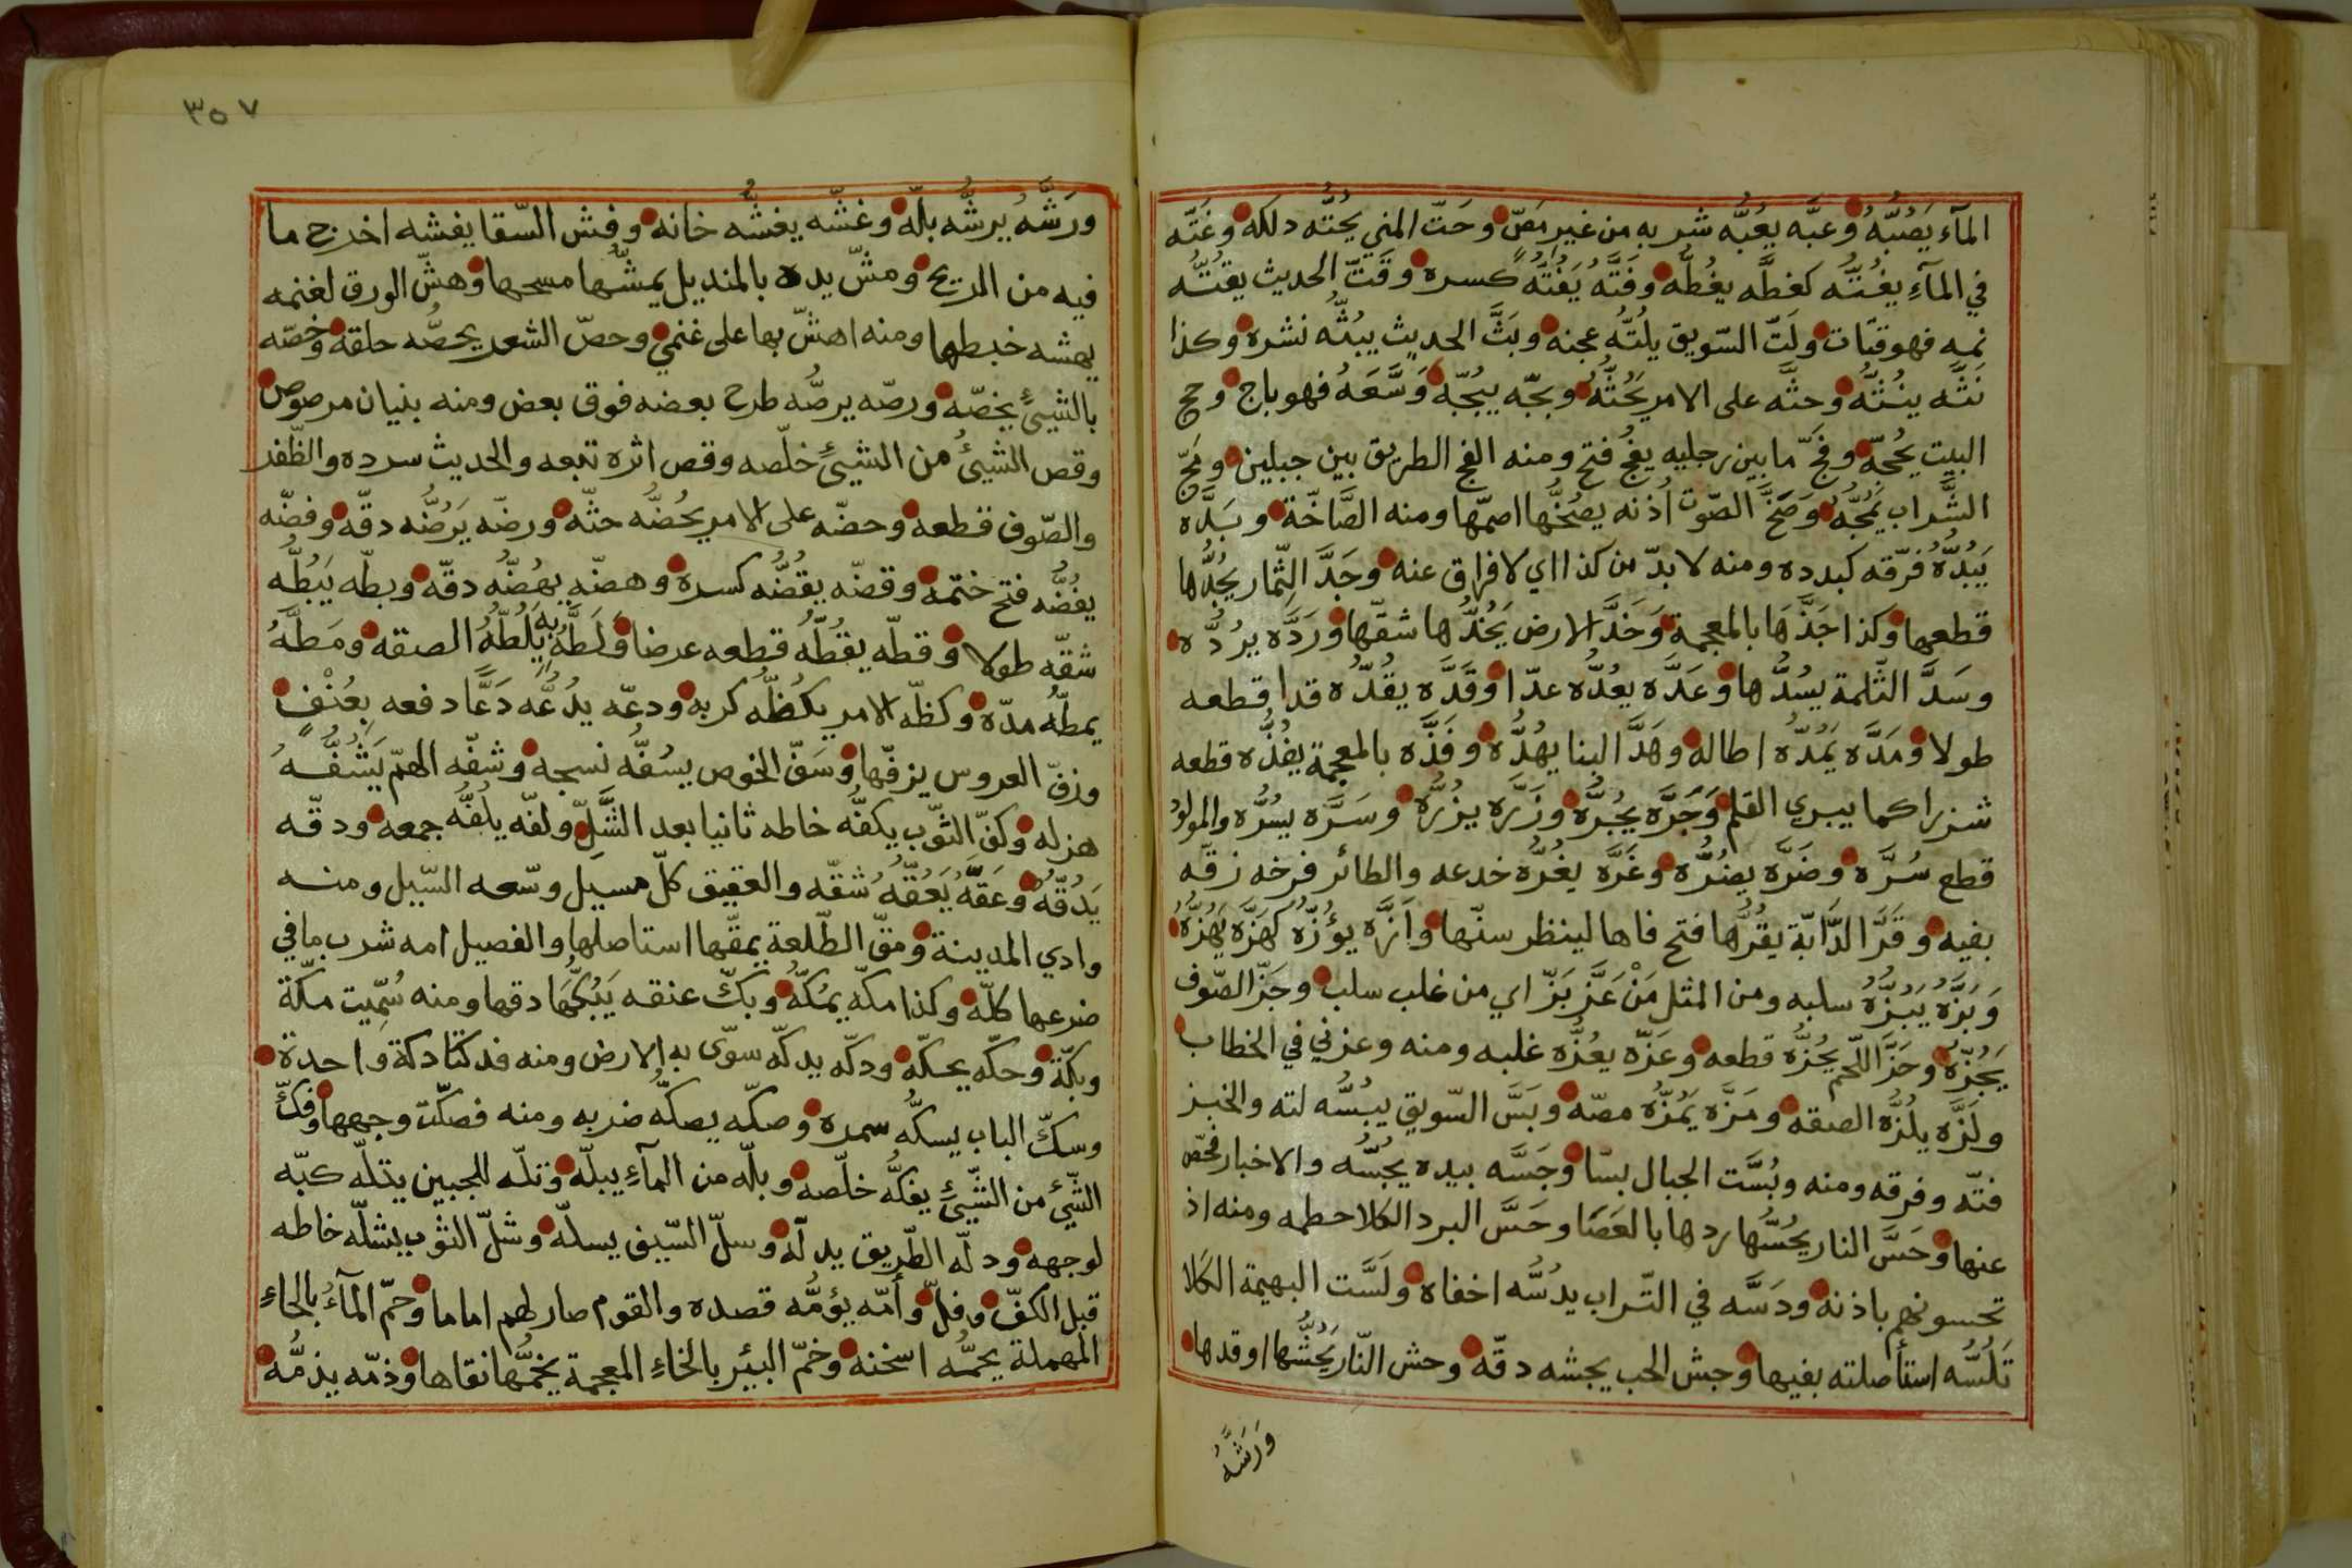 المآء يَصُبُّهُ وعبَّه يعُبُّه شربه من غير مَصّ وحَتّ المني يحُتُّه دلكه وغَتَّه
في المآءِ يغُتُّه كغطَّه يغُطُّه وفَتَّه يَفُتُّه كسره وقَتّ الحديث يقتُّه
نمه فهو قتّات ولَتّ السّويق يلُتُّه عجنه وبَثَّ الحديث يبُثُّه نشره وكذا
نَثَّه ينُثُّه وحثَّه على الامر يَحُثُّهُ وبجّه يبُجّه وَسَّعَهُ فهو باج وحج
البيت يحُجّه وفجّ ما بين رجليه يفُج فتح ومنه الفج الطريق بين جبلين ومجّ
الشَّراب يَمُجُّهُ وَصَخَّ الصّوت اُذنه يصُخُّها اصمّها ومنه الصَّاخّة وبَدَّه
يَبُدُّهُ فرّقه كبدده ومنه لا بدّ من كذا اي لا فراق عنه وجَدَّ الثِّمار يجُدُّها
قطعها وكذا جَذَّهَا بالمعجمة وَخَدَّ الارض يَخُدُّها شقّها ورَدَّه يرُدُّه
وسَدَّ الثّلمة يسُدُّها وعَدَّه يعُدُّه عدّا وقَدَّه يقُدُّه قدا قطعه
طولا ومَدَّه يَمُدّه اطاله وهَدَّ البنا يهُدُّه وفَذَّه بالمعجمة يفُذُّه قطعه
شزرا كما يبري القلم وَجَرَّه يجُرَّه وزَرَّه يزُرَّه وسَرَّه يسُرَّه والمولود
قطع سُرَّه وضَرَّه يضُرُّه وغَرَّه يغُرُّه خدعه والطائر فرخه زقّه
بفيه وفَرَّ الدَّابّة يفُرُّها فتح فاها لينظر سنّها وأَزَّه يؤُزّه كهَزَّه يَهُزَّهُ
وَبَزَّه يَبُزُّهُ سلبه ومن المثل مَنْ عَزَّ بَزّ اي من غلب سلب وجَزّ الصّوف
يَجُزّه وحَزَّ اللّحم يحُزَّه قطعه وعَزّه يعُزُّه غلبه ومنه وعزني في الخطاب
ولَزَّه يلُزُّه الصقه ومَزَّه يَمُزُّه مصّه وبَسَّ السّويق يبُسُّه لته والخبز
فتّه وفرقه ومنه وبُسَّت الجبال بسّا وجَسَّه بيده يجُسُّه والاخبار فحّص
عنها وحَسَّ النار يحُسُّها ردها بالعَصَا وحَسَّ البرد الكلا حطمه ومنه اذ
تحسونهم باذنه ودَسَّه في التّراب يدُسُّه اخفاه ولَسَّت البهيمة الكلا
تَلُسُّه استأصلته بفيها وجش الحب يجشه دقّه وحش النّار يَحُشُّها اوقدها
وَرَشَّهُ
٣٥٧
ورَشَّهُ يرشُّه بلّه وغشّه يغشُّه خانه وفش السّقا يفشه اخرج ما
فيه من الريح ومشّ يده بالمنديل يمشُّها مسحها وهشّ الورق لغنمه
يهشه خبطها ومنه اهشّ بها على غنمي وحصّ الشعر يحصُّه حلقه وخصّه
بالشيئِ يخصّه ورصّه يرصُّه طرح بعضه فوق بعض ومنه بنيان مرصوص
وقص الشيئُ من الشيئِ خلّصه وقص اثره تتبعه والحديث سرده والظّفر
والصّوف قطعه وحضّه على الامر يحُضُّه حثّه ورضّه يَرُضُّه دقّه وفضّه
يفُضُّه فتح ختمه وقضّه يقُضُّه كسره وهضّه يهُضُّه دقّه وبطّه يَبُطُّه
شقّه طولا وقطّه يقُطُّه قطعه عرضا وَلَطَّهُ به يَلُطُّهُ الصقه ومَطَّهُ
يمطُّهُ مدّه وكظّه الامر يكُظُّه كربه ودعّه يدُعُّه دَعًّا دفعه بِعُنْفٍ
وزفّ العروس يزفّها وسَفّ الخوص يسُفُّه نسجه وشفّه الهمّ يَشُفُّهُ
هزله وكفّ الثّوب يكفُّه خاطه ثانيا بعد الشَّلّ ولفّه يلُفُّه جمعه ودقّه
يَدُقُّهُ وَعَقَّهُ يَعُقُّهُ شقّه والعقيق كلّ مسيل وسّعه السّيل ومنه
وادي المدينة ومقّ الطّلعة يمقّها استاصلها والفصيل امه شرب ما في
ضرعها كلّه وكذا مكّه يمُكّهُ وبكّ عنقه يَبُكُّهَا دقها ومنه سُمِّيت مكّة
وبكّة وحكّه يحكّه ودكّه يدكّه سوّى به الارض ومنه فدكتا دكة واحدة
وسكّ الباب يسكُّه سمره وصكّه يصكُّه ضربه ومنه فصكّت وجهها وفكّ
الشّيئ من الشّيئِ يفكُّه خلّصه وبلّه من المآءِ يبلّه وتلّه للجبين يتلّه كبّه
لوجهه ودلّه الطّريق يدلّه وسلّ السّيف يسلّه وشلّ الثوب يشلّه خاطه
قبل الكفّ وفلّ وأمّه يؤمُّه قصده والقوم صار لهم اماما وحمّ المآءُ بالحاءِ
المهملة يحمُّه اسخنه وخمّ البئر بالخاءِ المعجمة يخمُّها نقاها وذمّه يذمُّه